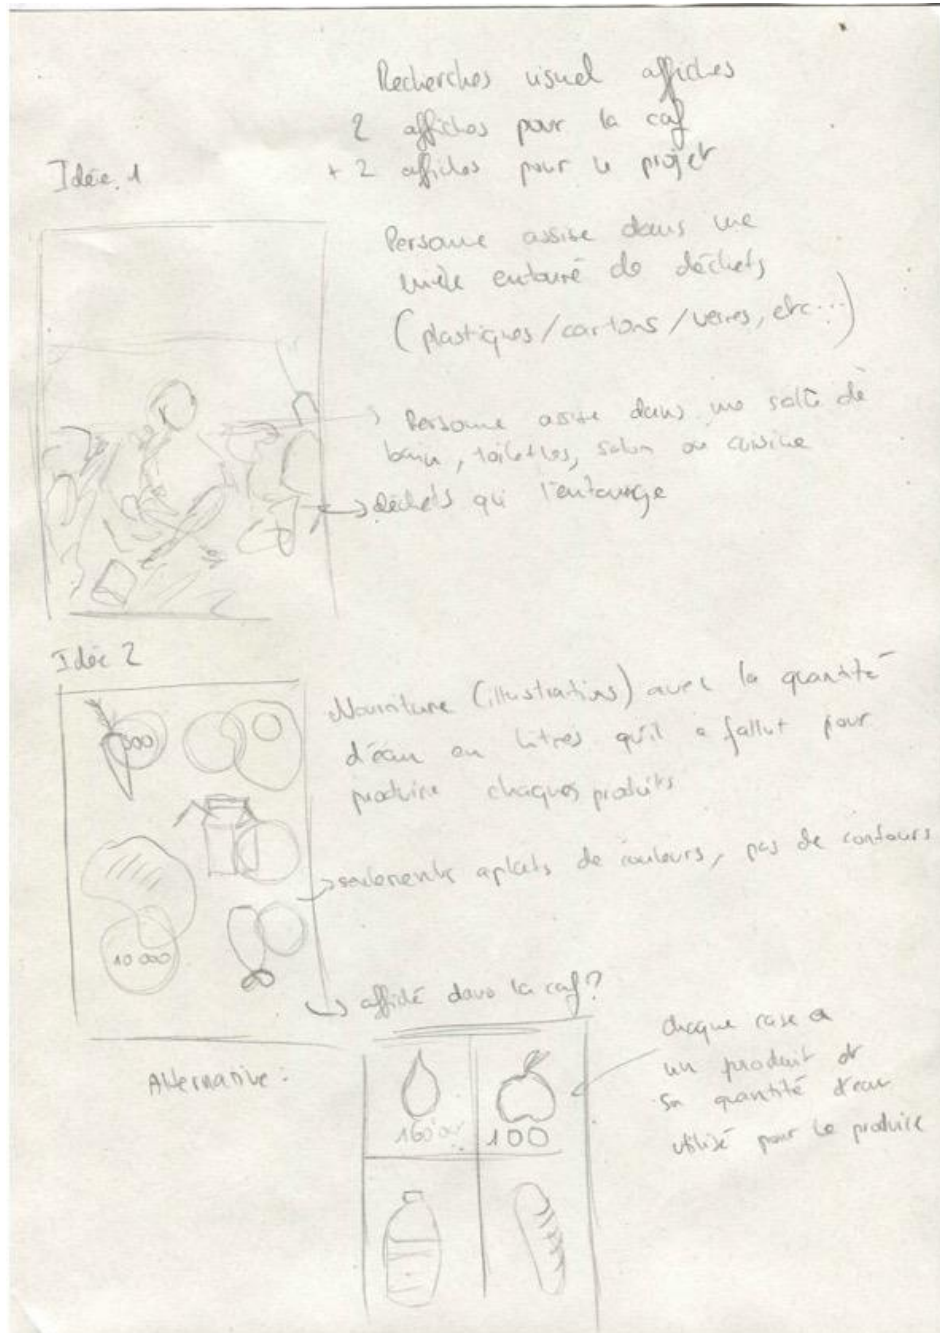 Recherches visuel affiches
2 affiches pour la caf
+ 2 affiches pour le projet
Idée 1
Personne assise dans une
entouré de déchets
(plastiques/cartons/verres, etc...)
Personne assise dans une salle de
bain, toilettes, salon ou cuisine
déchets qui l'entourge
Idée 2
Nourriture (illustrations) avec la quantité
d'eau en litres qu'il a fallut pour
produire chaques produits
000
seulements aplats de couleurs, pas de contours
10 000
affiché dans la caf?
Alternative :
chaque case a
un produit et
sa quantité d'eau
utilisé pour le produire
100